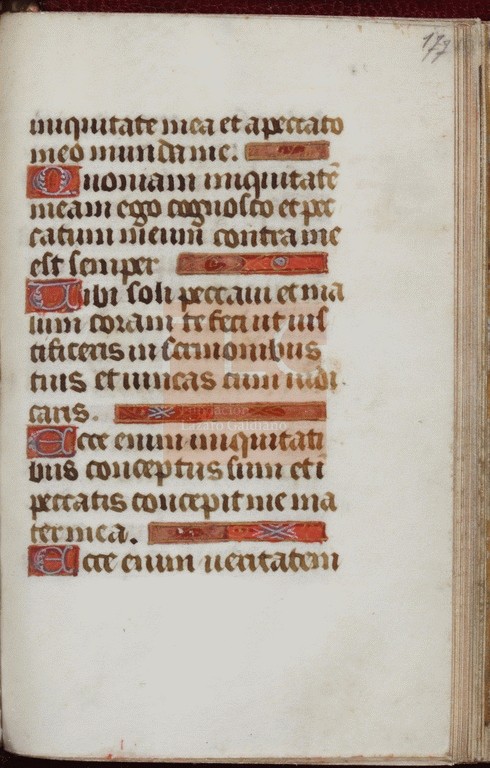 177
iniquitate mea et a peccato
meo munda me.
Quoniam iniquitatē
meam ego cognosco et pec
catum meum contra me
est semper
Tibi soli peccaui et ma
lum coram te feci ut ius
tificeris in sermonibus
tuis et uincas cum iudi
caris.
Ecce enim iniquitati
bus conceptus sum et ī
peccatis concepit me ma
ter mea.
Ecce enim ueritatem
Fundación
Lázaro Galdiano